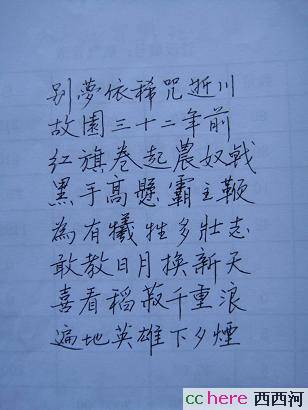 别夢依稀咒逝川
故園三十二年前
紅旗卷起農奴戟
黑手高懸霸主鞭
為有犧牲多壯志
敢教日月換新天
喜看稻菽千重浪
遍地英雄下夕煙
cchere 西西河